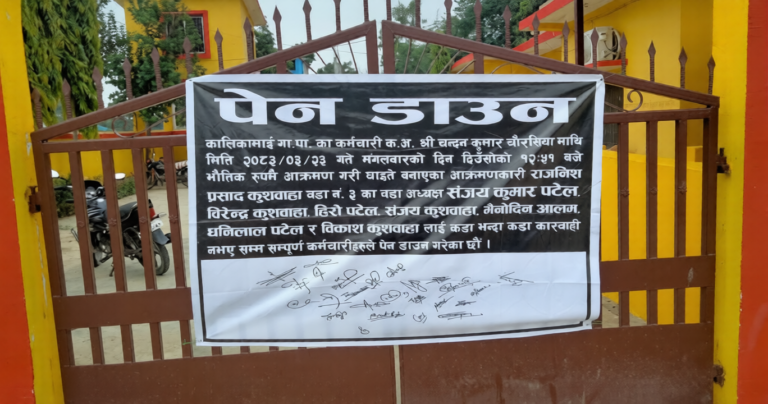 पेन डाउन
कालिकामाई गा.पा. का कर्मचारी क.अ. श्री चन्दन कुमार चौरसिया माथि
मिति २०८३/०३/२३ गते मंगलवारको दिन दिउँसोको १२:५१ बजे
भौतिक रुपमै आक्रमण गरी घाइते बनाएका आक्रमणकारी राजनिश
प्रसाद कुशवाहा वडा नं. ३ का वडा अध्यक्ष संजय कुमार पटेल,
विरेन्द्र कुशवाहा, हिरो पटेल, संजय कुशवाहा, मैनोदिन आलम,
धनिलाल पटेल र विकाश कुशवाहा लाई कडा भन्दा कडा कारवाही
नभए सम्म सम्पूर्ण कर्मचारीहरुले पेन डाउन गरेका छौं ।